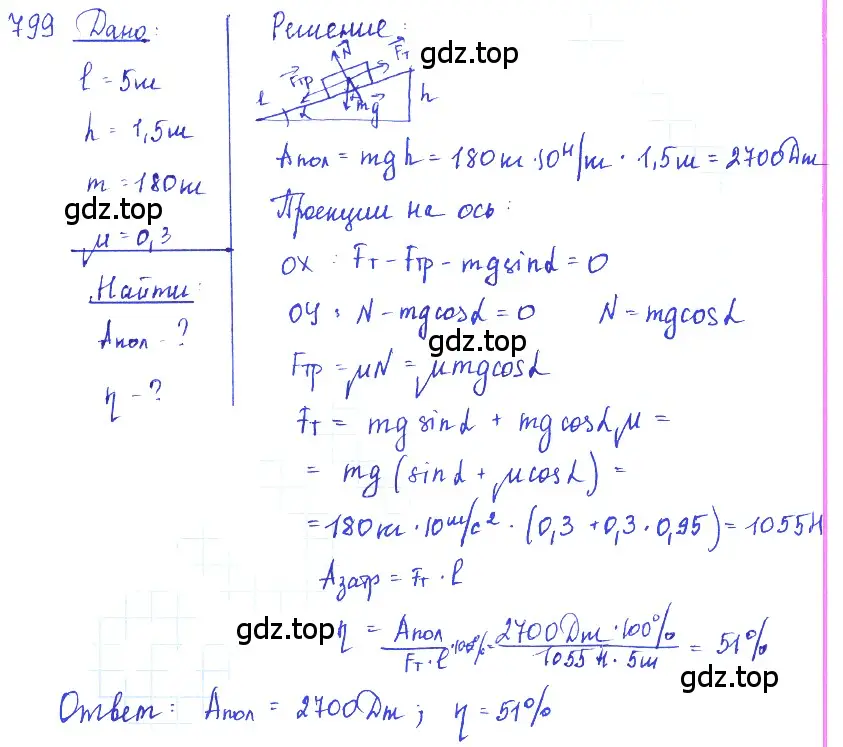 799 Дано:
l = 5м
h = 1,5м
m = 180кг
gdz.top
μ = 0,3
Найти:
Aпол - ?
η - ?
Решение:
N Fт gdz.top
Fтр
l α mg h
Aпол = mgh = 180кг · 10 Н/кг · 1,5м = 2700Дж
Проекции на ось:
OX : Fт - Fтр - mgsinα = 0
OY : N - mgcosα = 0 N = mgcosα
gdz.top
Fтр = μN = μmgcosα
Fт = mg sinα + mgcosαμ =
= mg (sinα + μcosα) =
= 180кг · 10 м/с² · (0,3 + 0,3 · 0,95) = 1055Н
Aзатр = Fт · l
gdz.top η = Aпол / Fт · l · 100% = 2700Дж · 100% / 1055 Н · 5м = 51%
gdz.top
Ответ: Aпол = 2700Дж; η = 51%